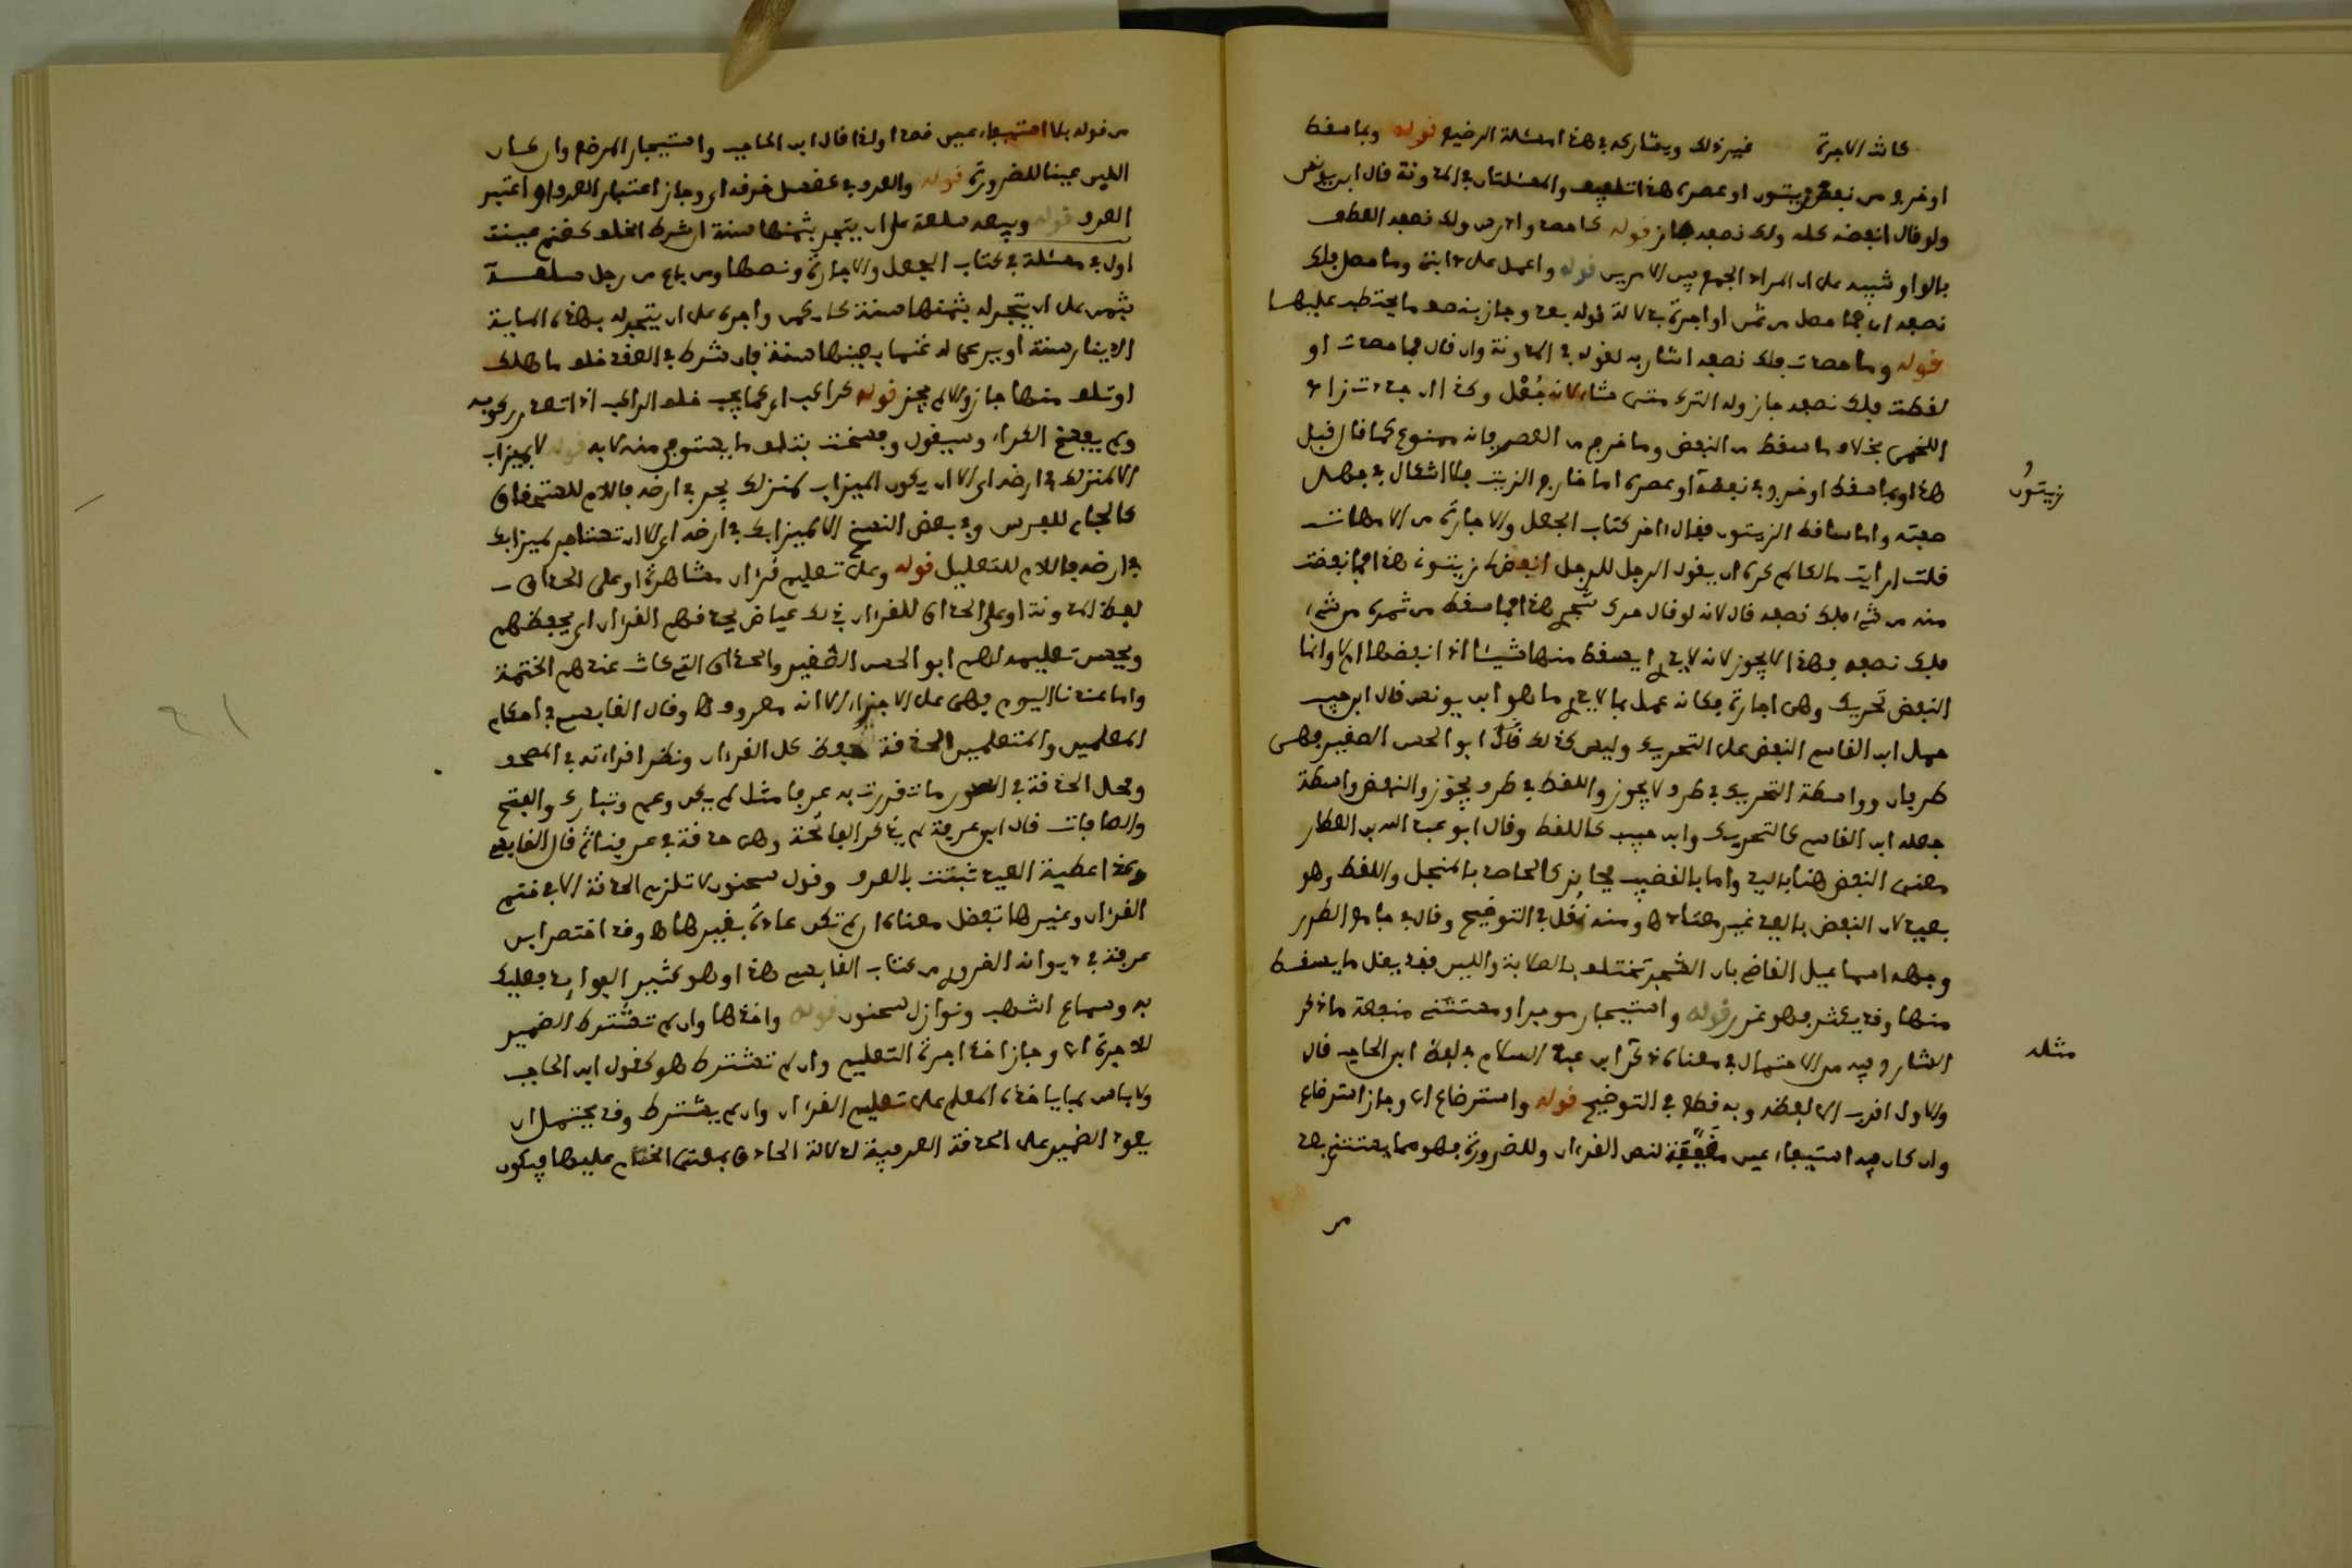 كانت الاجرة غير ذلك ويشاركه في هذا مسئلة الرضيع قوله وبما سقط
او خرج من نفض زيتون او عصره هذا تلفيف والمسئلتان في المدونة قال ابن يونس
ولو قال انفضه كله ولك نصفه جاز قوله كاحصد وادرس ولك نصفه العطف
بالواو تنبيه على ان المراد الجمع بين الامرين قوله واعمل على دابتي وما حصل فلك
نصفه اي فما حصل من ثمن او اجرة بخلافه قوله بعد وجاز بنصف ما يحتطب عليها
قوله وما حصدت فلك نصفه اشار به لقوله في المدونة وان قال فما حصدت او
لقطت فلك نصفه جاز وله الترك متى شاء لانه جُعْل وكذا ان جددت زاد
اللخمي بخلاف ما سقط من النفض وما خرج من العصر فانه ممنوع كما قال قبل
هذا وبما سقط او خرج في نفضه او عصره اما خارج الزيت فلا اشكال في جهل
صفته واما ساقط الزيتون فقال اخر كتاب الجعل والاجارة من الامهات
قلت ارايت مالكا لم كره ان يقول الرجل للرجل انفض زيتونه هذا فما نفضت
منه من شيء فلك نصفه قال لانه لو قال حرك شجره هذا فما سقط من ثمره من شيء
فلك نصفه فهذا لا يجوز لانه لا يدري ايسقط منها شيئا اذا نفضها ام لا وانما
النفض تحريك وهي اجارة فكانه عمل بما لا يدري ما هو ابن يونس قال ابن حبيب
حمل ابن القاسم النفض على التحريك وليس كذلك قال ابو الحسن الصغير فهي
طرفان وواسطة التحريك في طرف لا يجوز واللقط في طرف يجوز والنفض واسطة
جعله ابن القاسم كالتحريك وابن حبيب كاللقط وقال ابو عبد الله بن العطار
معنى النفض هنا باليد واما بالقضيب فجايز كالحصد بالمنجل واللقط وهو
بعيد لان النفض باليد غير معتاد ومنه نُقل في التوضيح وقال في جامع الطرر
وجهه اسماعيل القاضي بان الشجرة تختلف بالصلابة واللين فقد يقل ما يسقط
منها وقد يكثر فهو غرر قوله واستيجار موجر او مستثنى منفعة ما ذكر
الشارح فيه من الاحتمال في معناه ذكر ابن عبد السلام في لفظ ابن الحاجب قال
والاول اقرب الى لفظه وبه قطع في التوضيح قوله واسترضاع اي وجاز استرضاع
وان كان فيه استيفاء عين حقيقة لنص القرءان وللضرورة فهو مما يستثنى بعد
زيتون
مثله
من
من قوله بلا استيفاء عين قصدا ولذا قال ابن الحاجب واستيجار المرضع وان كان
اللبن عينا للضرورة قوله والعرف في كغسل خرقه اي وجاز اعتبار العرف او اعتبر
العرف قوله وبيعه سلعة على ان يتجر بثمنها سنة ان شرط الخلف كغنم عينت
اول مسئلة في كتاب الجعل والاجارة ونصها ومن باع من رجل سلعة
بثمن على ان يتجر له بثمنها سنة كان كمن واجره على ان يتجر له بهذه الماية
الدينار سنة او يرعى له غنما بعينها سنة فان شرط في العقد خلف ما هلك
او تلف منها جاز والا لم يجز قوله كراكب اي كما يجب خلف الراكب اذا تعذر ركوبه
ولم يفسخ الكراء وسيقول وفسخت بتلف ما يستوفى منه لا به قوله لا بميزاب
الا لمنزلك في ارضه اي الا ان يكون الميزاب لمنزلك يجري في ارضه فاللام للاستحقاق
كالجام للفرس وفي بعض النسخ الا لميزابك في ارضه اي الا ان تستاجر لميزابك
في ارضه فاللام للتعليل قوله وعلى تعليم قرءان مشاهرة او على الحذاق
لفظ المدونة او على الحذاق للقرءان بذلك عياض يحذقهم القرءان اي يحفظهم
ويحسن تعليمه لهم ابو الحسن الصغير والحذاق التي كانت عندهم الختمة
واما عندنا اليوم فهي على الاجزاء لانه معروف وقال القابسي في احكام
المعلمين والمتعلمين الحذقة حفظ كل القرءان ونظر اقراءته في المصحف
ومحل الحذقة في السور ما تقررت به عرفا مثل لم يكن وعم وتبارك والفتح
والصافات قال ابن عرفة لم يذكر الفاتحة وهي حذقة في عرفنا ثم قال القابسي
وكذا عطية العيد ثبتت بالعرف وقول سحنون لا تلزم الحذقة الا في ختم
القرءان وغيرها تفضل معناه ان لم تكن عادة بغيرها وقد اختصر ابن
عرفة في ديوانه الغرر من كتاب القابسي هذا وهو كثير الفوايد فعليك
به وسماع اشهب ونوازل سحنون قوله واخذها وان لم تشترط الضمير
للاجرة اي وجاز اخذ اجرة التعليم وان لم تشترط هو كقول ابن الحاجب
ولا باس بما ياخذه المعلم على تعليم القرءان وان لم يشترط وقد يحتمل ان
يعود الضمير على الحذقة العرفية لدلالة الحذاق بمعنى الختم عليها فيكون